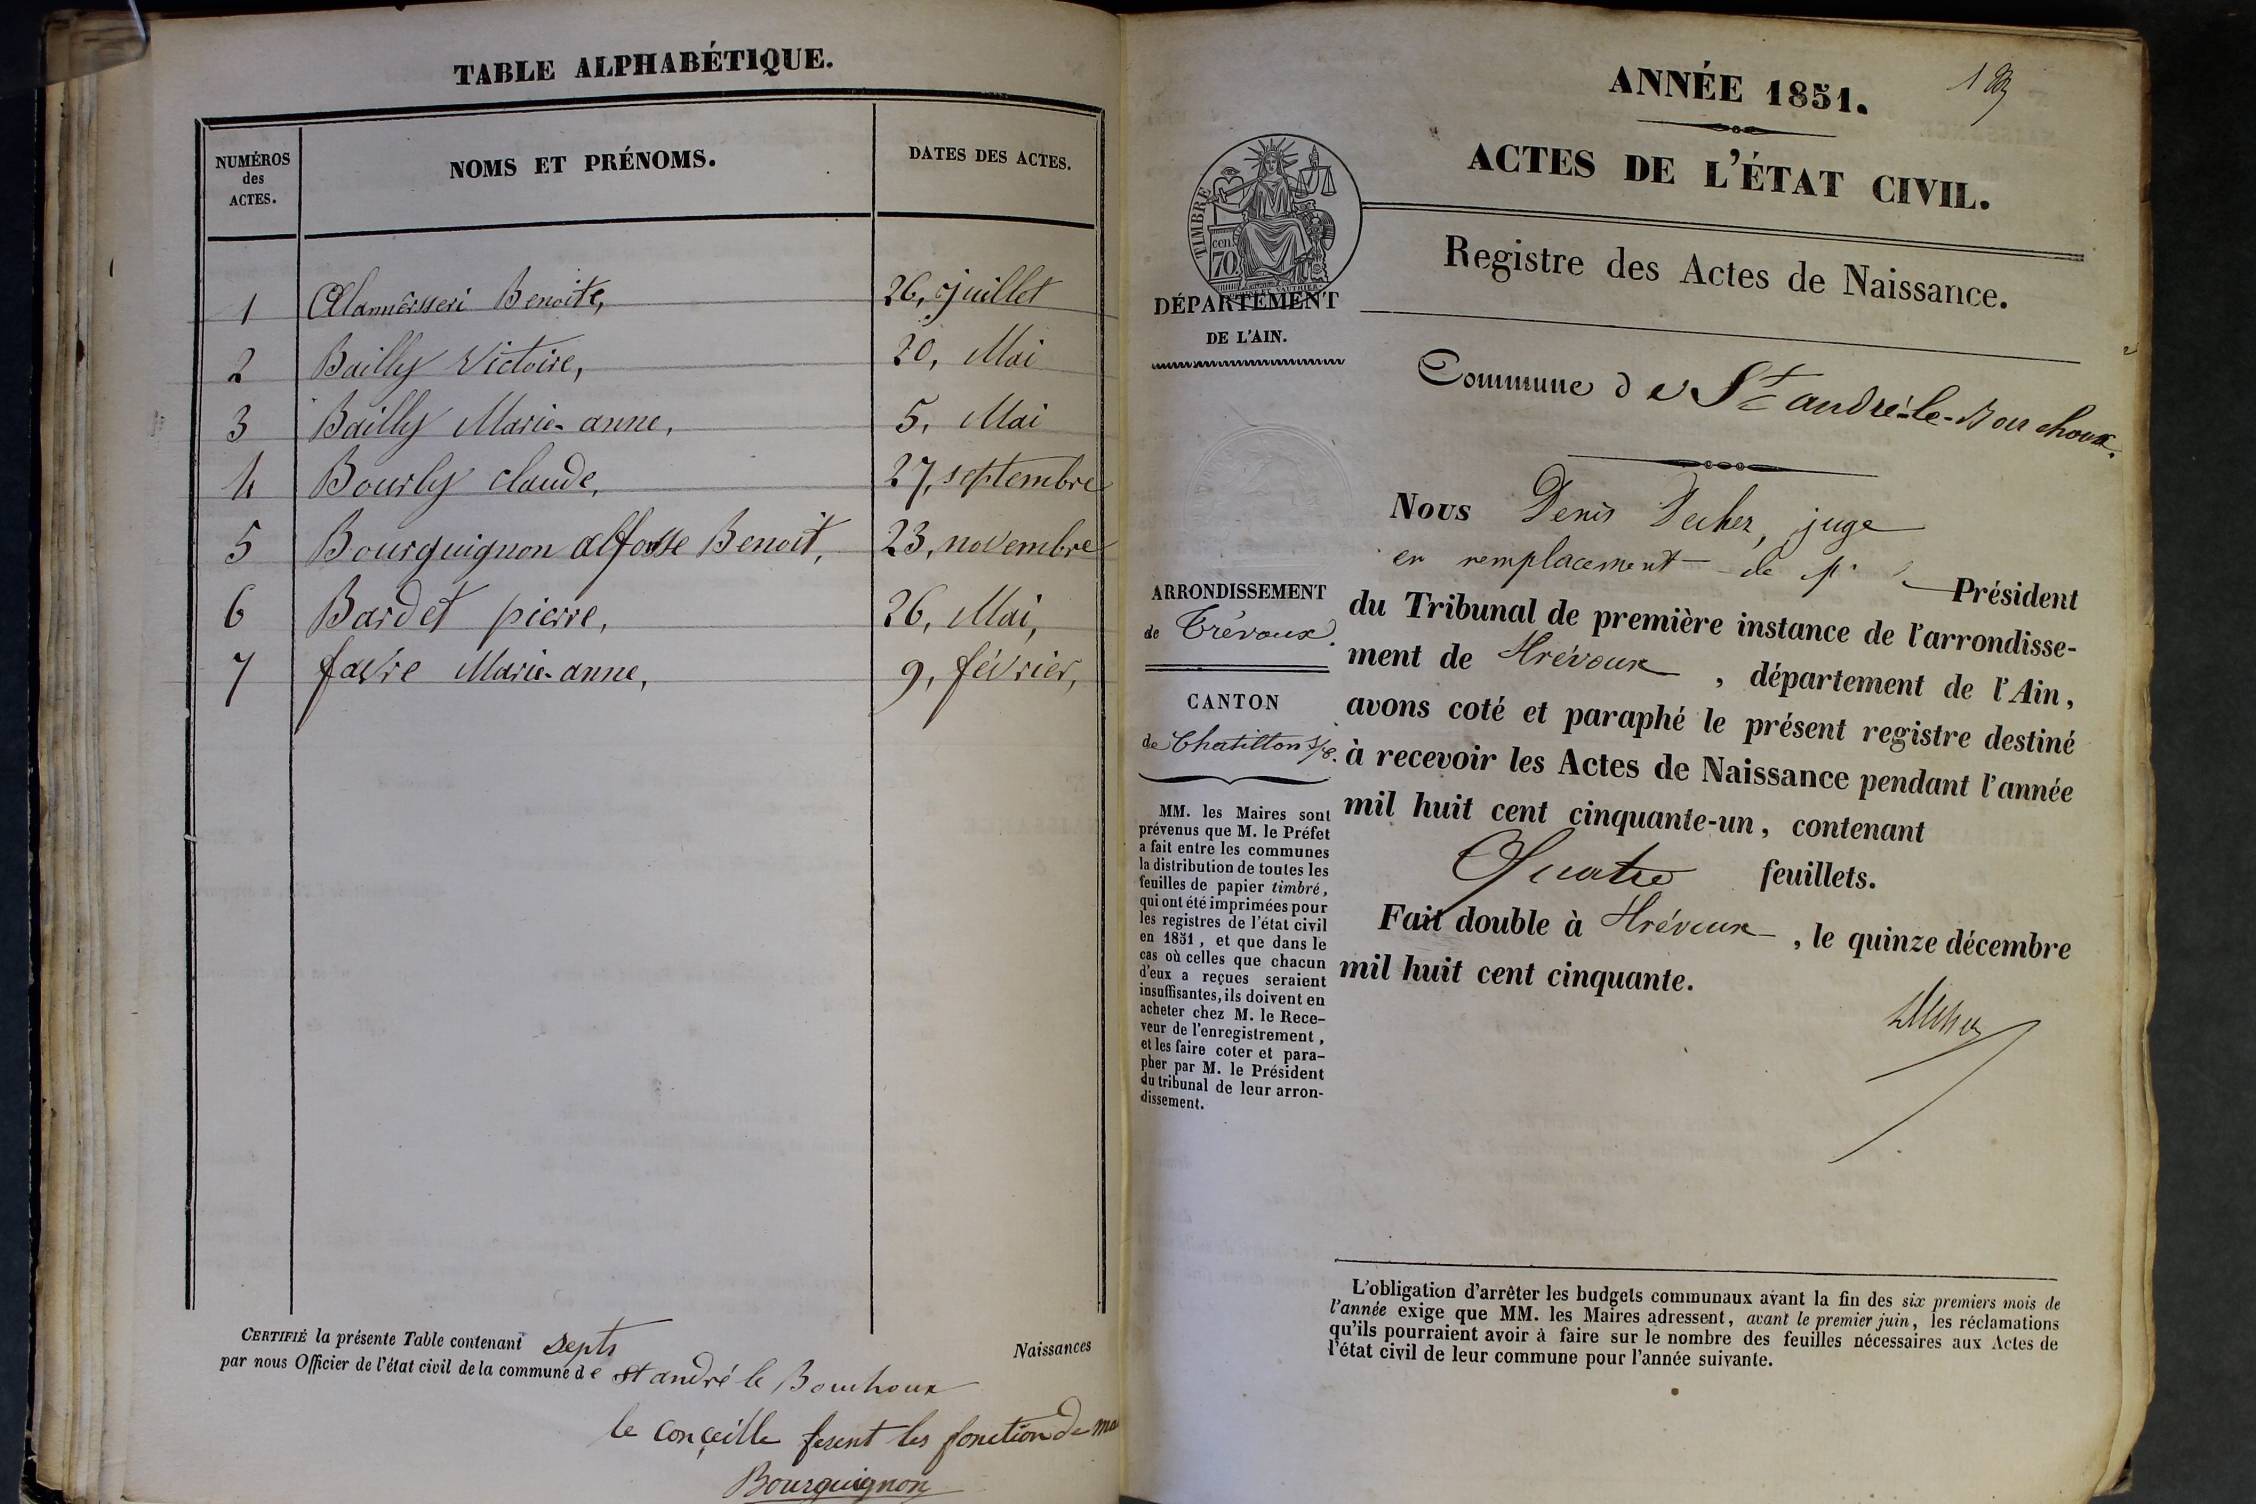 TABLE ALPHABÉTIQUE.
NUMÉROS
des
ACTES.
NOMS ET PRÉNOMS.
DATES DES ACTES.
1 Benoite, 26, juillet
2 Bailly Victoire, 20, Mai
3 Bailly Marie-anne, 5, Mai
4 Bourly claude, 27, septembre
5 Bourguignon Benoit, 23, novembre
6 Bardet pierre, 26, Mai,
7 favre Marie-anne, 9, février,
CERTIFIÉ la présente Table contenant septs Naissances
par nous Officier de l'état civil de la commune de st andré le Bouchoux
le conçeille fesent les fonction de ma
Bourguignon
ANNÉE 1851.
ACTES DE L'ÉTAT CIVIL.
TIMBRE
70
cen.
Registre des Actes de Naissance.
DÉPARTEMENT
DE L'AIN.
Commune de St andré-le-Bouchoux.
Nous Denis juge
en remplacement de Président
ARRONDISSEMENT
de Trévoux.
CANTON
de Chatillon s/c.
du Tribunal de première instance de l'arrondisse-
ment de Trévoux, département de l'Ain,
avons coté et paraphé le présent registre destiné
à recevoir les Actes de Naissance pendant l'année
mil huit cent cinquante-un, contenant
Quatre feuillets.
Fait double à Trévoux, le quinze décembre
mil huit cent cinquante.
MM. les Maires sont
prévenus que M. le Préfet
a fait entre les communes
la distribution de toutes les
feuilles de papier timbré,
qui ont été imprimées pour
les registres de l'état civil
en 1851, et que dans le
cas où celles que chacun
d'eux a reçues seraient
insuffisantes, ils doivent en
acheter chez M. le Rece-
veur de l'enregistrement,
et les faire coter et para-
pher par M. le Président
du tribunal de leur arron-
dissement.
L'obligation d'arrêter les budgets communaux avant la fin des six premiers mois de
l'année exige que MM. les Maires adressent, avant le premier juin, les réclamations
qu'ils pourraient avoir à faire sur le nombre des feuilles nécessaires aux Actes de
l'état civil de leur commune pour l'année suivante.